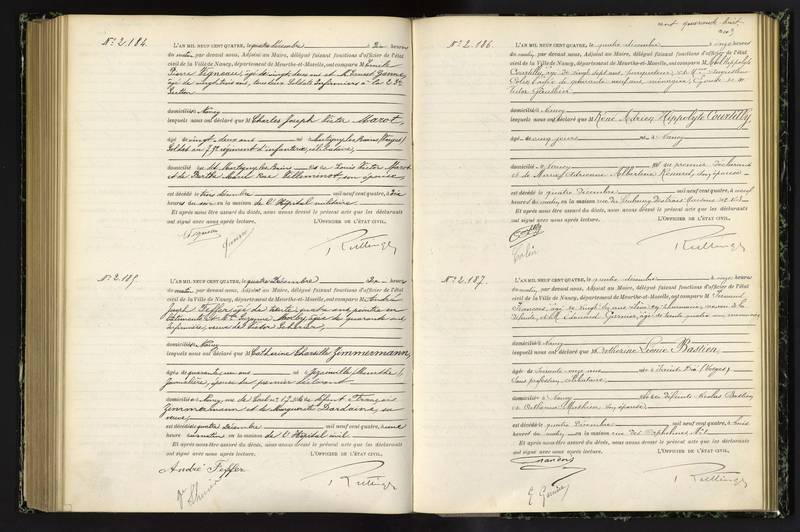 N° 2,184.
L'AN MIL NEUF CENT QUATRE, le quatre décembre à dix heures
du matin, par devant nous, Adjoint au Maire, délégué faisant fonctions d'officier de l'état
civil de la Ville de Nancy, département de Meurthe-et-Moselle, ont comparu M
Pierre Vigneau, âgé de vingt deux ans et
âgé de vingt trois ans, tous deux Soldats Infirmiers à la
Section
domiciliés à Nancy
lesquels nous ont déclaré que M Charles Joseph Victor Marot,
âgé de vingt deux ans né à Martigny les Bains (Vosges)
Soldat au 79e régiment d'infanterie, célibataire,
domicilié à Martigny les Bains fils de Louis Victor Marot
et de Marie Rose Villeminot, son épouse,
est décédé le trois décembre mil neuf cent quatre, à dix
heures du soir en la maison de l'Hôpital militaire
Et après nous être assuré du décès, nous avons dressé le présent acte que les déclarants
ont signé avec nous après lecture. L'OFFICIER DE L'ÉTAT CIVIL,
Vigneau
N° 2,185.
L'AN MIL NEUF CENT QUATRE, le quatre Décembre à dix heures
du matin, par devant nous, Adjoint au Maire, délégué faisant fonctions d'officier de l'état
civil de la Ville de Nancy, département de Meurthe-et-Moselle, ont comparu M André
Joseph Feffer âgé de trente quatre ans, peintre en
bâtiments, et
domiciliés à Nancy
lesquels nous ont déclaré que M Catherine Charlotte Zimmermann,
âgée de quarante un ans née à (Meurthe)
Journalière, épouse du premier déclarant
domiciliée à Nancy, fille de défunt François
Zimmermann et de Marguerite Dardaine, sa
veuve,
est décédée le quatre Décembre mil neuf cent quatre, à une
heure du matin en la maison de l'Hôpital civil
Et après nous être assuré du décès, nous avons dressé le présent acte que les déclarants
ont signé avec nous après lecture. L'OFFICIER DE L'ÉTAT CIVIL,
André Feffer
cent quarante huit
N° 2,186.
L'AN MIL NEUF CENT QUATRE, le quatre décembre à onze heures
du matin, par devant nous, Adjoint au Maire, délégué faisant fonctions d'officier de l'état
civil de la Ville de Nancy, département de Meurthe-et-Moselle, ont comparu M Hippolyte
Courtilly, âgé de vingt sept ans,
Colin, âgée de quarante neuf ans, ménagère, épouse de M
Victor Gauthier
domiciliés à Nancy
lesquels nous ont déclaré que M René Adrien Hippolyte Courtilly,
âgé de cinq jours né à Nancy
domicilié à Nancy fils du premier déclarant
et de Marie Adrienne Albertine Renard, son épouse
est décédé le quatre Décembre mil neuf cent quatre, à neuf
heures du matin, en la maison rue du Faubourg des Trois Maisons
Et après nous être assuré du décès, nous avons dressé le présent acte que les déclarants
ont signé avec nous après lecture. L'OFFICIER DE L'ÉTAT CIVIL,
Colin
N° 2,187.
L'AN MIL NEUF CENT QUATRE, le quatre décembre à onze heures
du matin, par devant nous, Adjoint au Maire, délégué faisant fonctions d'officier de l'état
civil de la Ville de Nancy, département de Meurthe-et-Moselle, ont comparu M Fernand
François, âgé de vingt cinq ans, élève en pharmacie, neveu de la
défunte, et M Edouard Garnier, âgé de trente quatre ans,
domiciliés à Nancy
lesquels nous ont déclaré que M Catherine Léonie Bastien,
âgée de soixante onze ans née à Saint Dié (Vosges)
Sans profession, célibataire,
domiciliée à Nancy fille des défunts Nicolas Bastien
et Catherine Mathieu son épouse,
est décédée le quatre Décembre mil neuf cent quatre, à trois
heures du matin en la maison rue des Orphelines
Et après nous être assuré du décès, nous avons dressé le présent acte que les déclarants
ont signé avec nous après lecture. L'OFFICIER DE L'ÉTAT CIVIL,
François